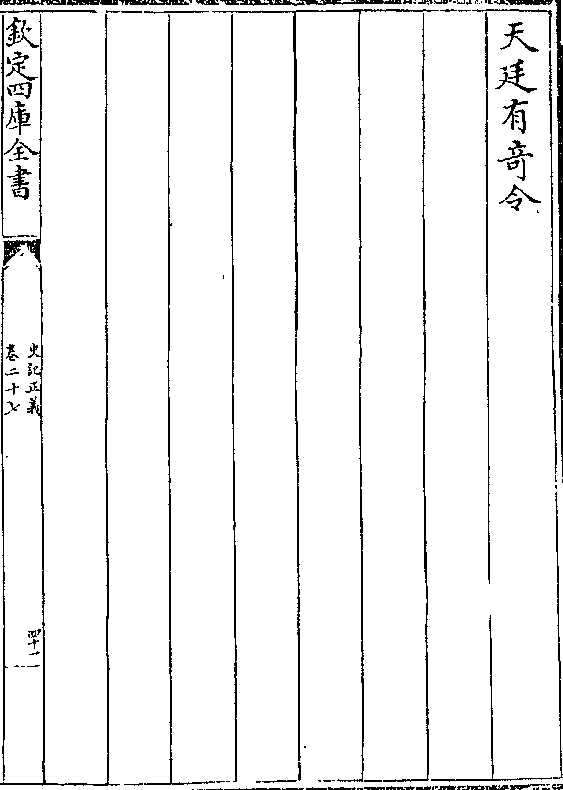 天廷有奇令
欽定四庫全書
史記正義
卷二十七
四十一